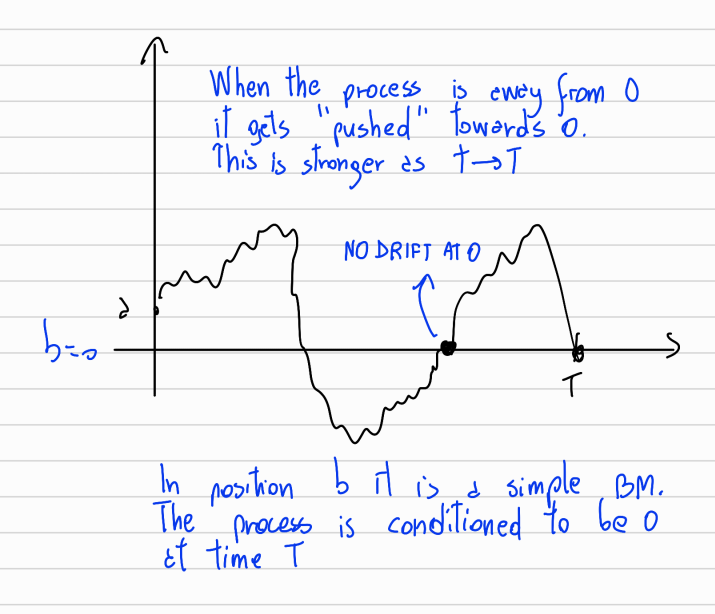 When the process is away from 0
it gets "pushed" towards 0.
This is stronger as t→T
NO DRIFT AT 0
a
b=0
s
T
In position b it is a simple BM.
The process is conditioned to be 0
at time T